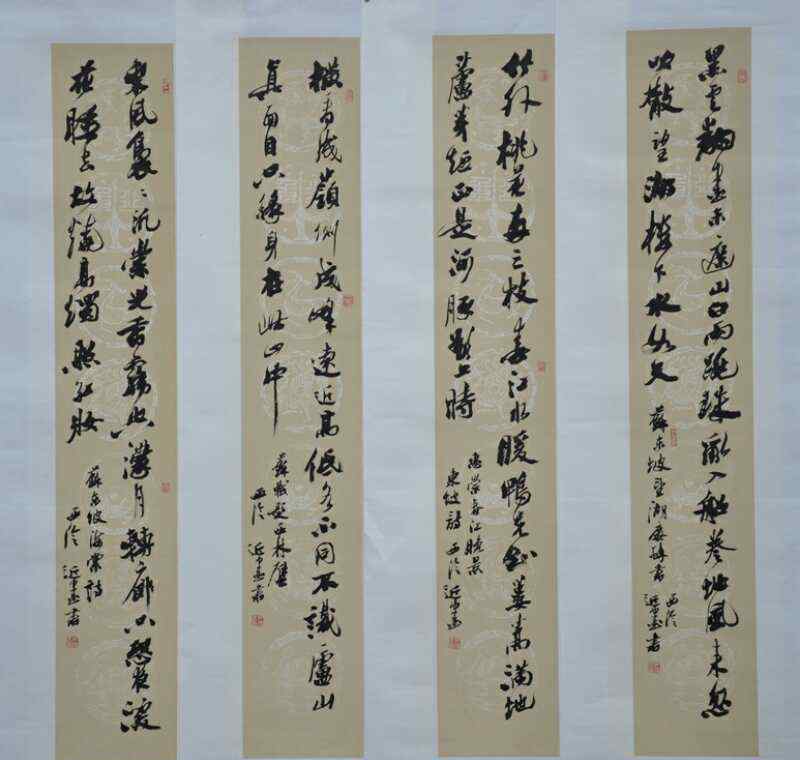 黑雲翻墨未遮山白雨跳珠亂入船卷地風来忽
吹散望湖樓下水如天
蘇東坡望湖樓醉書
西泠
竹外桃花两三枝春江水暖鴨先知蔞蒿滿地
蘆芽短正是河豚欲上時
惠崇春江曉景
東坡詩 西泠
橫看成嶺側成峰遠近高低各不同不識廬山
真面目只緣身在此山中
蘇軾題西林壁
西泠
東風裊〻泛崇光香霧空濛月轉廊只恐夜深
花睡去故燒高燭照紅妝
蘇東坡海棠詩
西泠